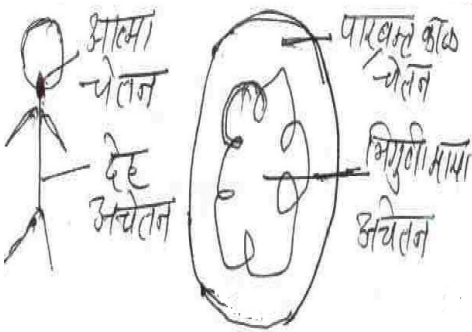 आत्मा
चेतन
देह
अचेतन
पारब्रम्ह काळ
चेतन
त्रिगुणी माया
अचेतन